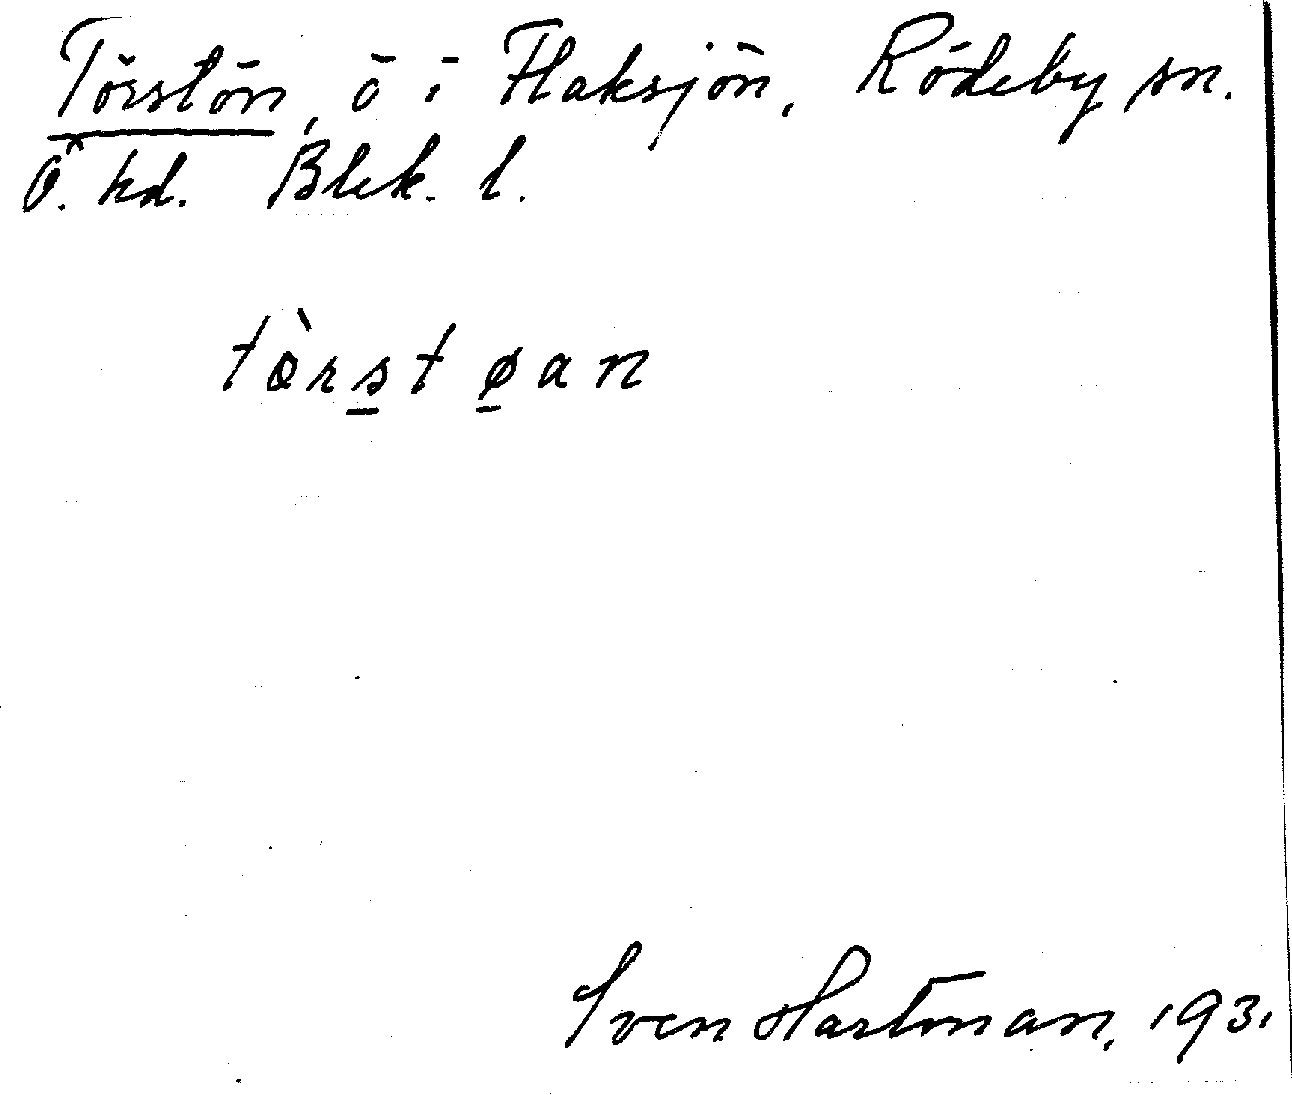 Törstön, ö i Flaksjön, Rödeby sn.
Ö. hd. Blek. l.
tö̀rstøan
Sven Hartman, 1931